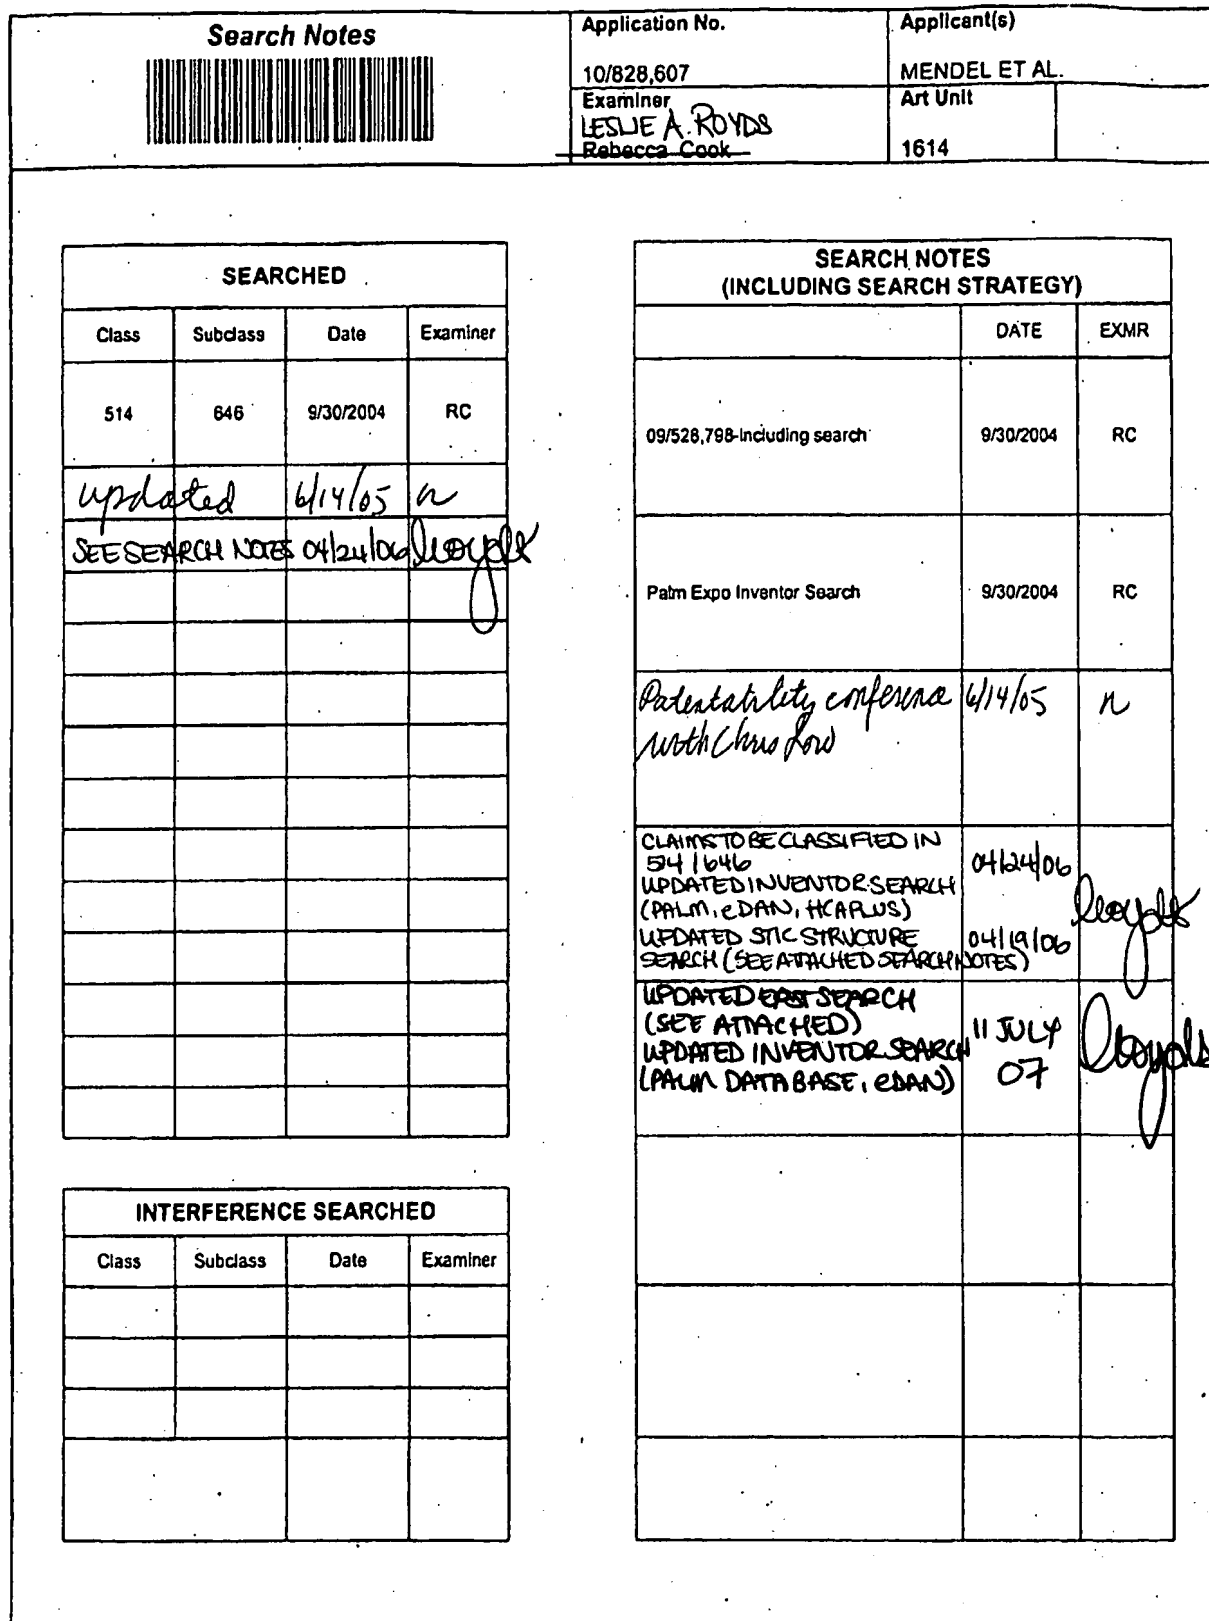 Search Notes
Application No.
10/828,607
Applicant(s)
MENDEL ET AL.
Examiner
LESLIE A. ROYDS
Rebecca Cook
Art Unit
1614
SEARCHED
Class Subclass Date Examiner
514 646 9/30/2004 RC
updated 6/14/05
SEE SEARCH NOTES 04/24/06
INTERFERENCE SEARCHED
Class Subclass Date Examiner
SEARCH NOTES
(INCLUDING SEARCH STRATEGY)
DATE EXMR
09/528,798-Including search 9/30/2004 RC
Palm Expo Inventor Search 9/30/2004 RC
Patentability conference 6/14/05
with Chris Low
CLAIMS TO BE CLASSIFIED IN
514/646 04/24/06
UPDATED INVENTOR SEARCH
(PALM, eDAN, HCAPLUS)
UPDATED STIC STRUCTURE 04/19/06
SEARCH (SEE ATTACHED SEARCH NOTES)
UPDATED EAST SEARCH
(SEE ATTACHED) 11 JULY
UPDATED INVENTOR SEARCH 07
(PALM DATABASE, eDAN)